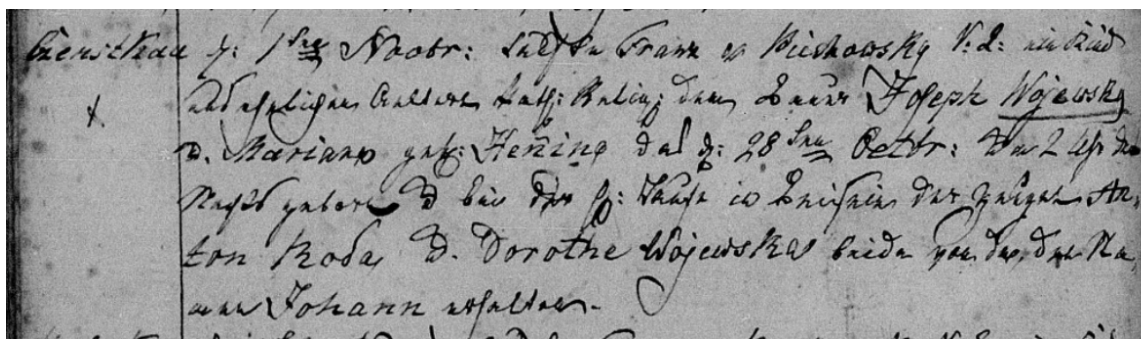 d: 1ten Novbr: taufte Franz v Piechowsky V. L: ein Kind
von ehelichen Aeltern kath: Relig: dem Bauer Joseph Wojewsky
u. Mariann geb: Hening das d: 28ten Octbr: um 2 Uhr des
Nachts geboren u bei der h: Taufe in Beisein der Zeugen An-
ton Roda u. Dorothe Wojewska beide von da, den Na-
men Johann erhalten.